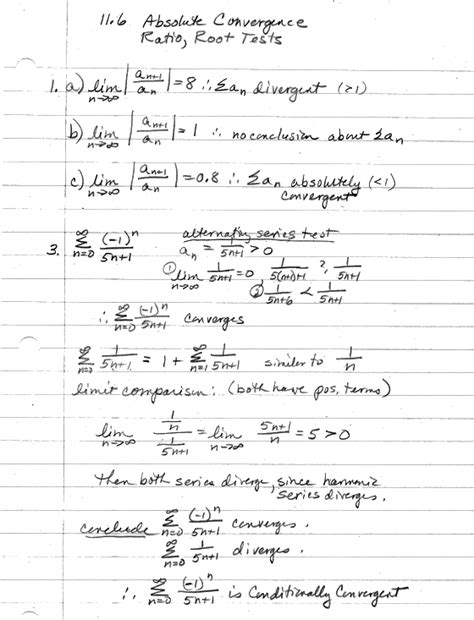 11.6 Absolute Convergence
Ratio, Root Tests
1. a) lim n→∞ |a_{n+1}/a_n| = 8 ∴ Σa_n divergent (>1)
b) lim n→∞ |a_{n+1}/a_n| = 1 ∴ no conclusion about Σa_n
c) lim n→∞ |a_{n+1}/a_n| = 0.8 ∴ Σa_n absolutely (<1)
convergent
3. Σ_{n=0}^{∞} (-1)^n/(5n+1) alternating series test
a_n = 1/(5n+1) > 0
① lim n→∞ 1/(5n+1) = 0, 1/(5(n+1)+1) ?, 1/(5n+1)
② 1/(5n+6) < 1/(5n+1)
∴ Σ_{n=0}^{∞} (-1)^n/(5n+1) converges
Σ_{n=0}^{∞} 1/(5n+1) = 1 + Σ_{n=1}^{∞} 1/(5n+1) similar to 1/n
limit comparison: (both have pos. terms)
lim n→∞ (1/n)/(1/(5n+1)) = lim n→∞ (5n+1)/n = 5 > 0
then both series diverge, since harmonic
series diverges.
conclude Σ_{n=0}^{∞} (-1)^n/(5n+1) converges.
Σ_{n=0}^{∞} 1/(5n+1) diverges.
∴ Σ_{n=0}^{∞} (-1)^n/(5n+1) is Conditionally Convergent